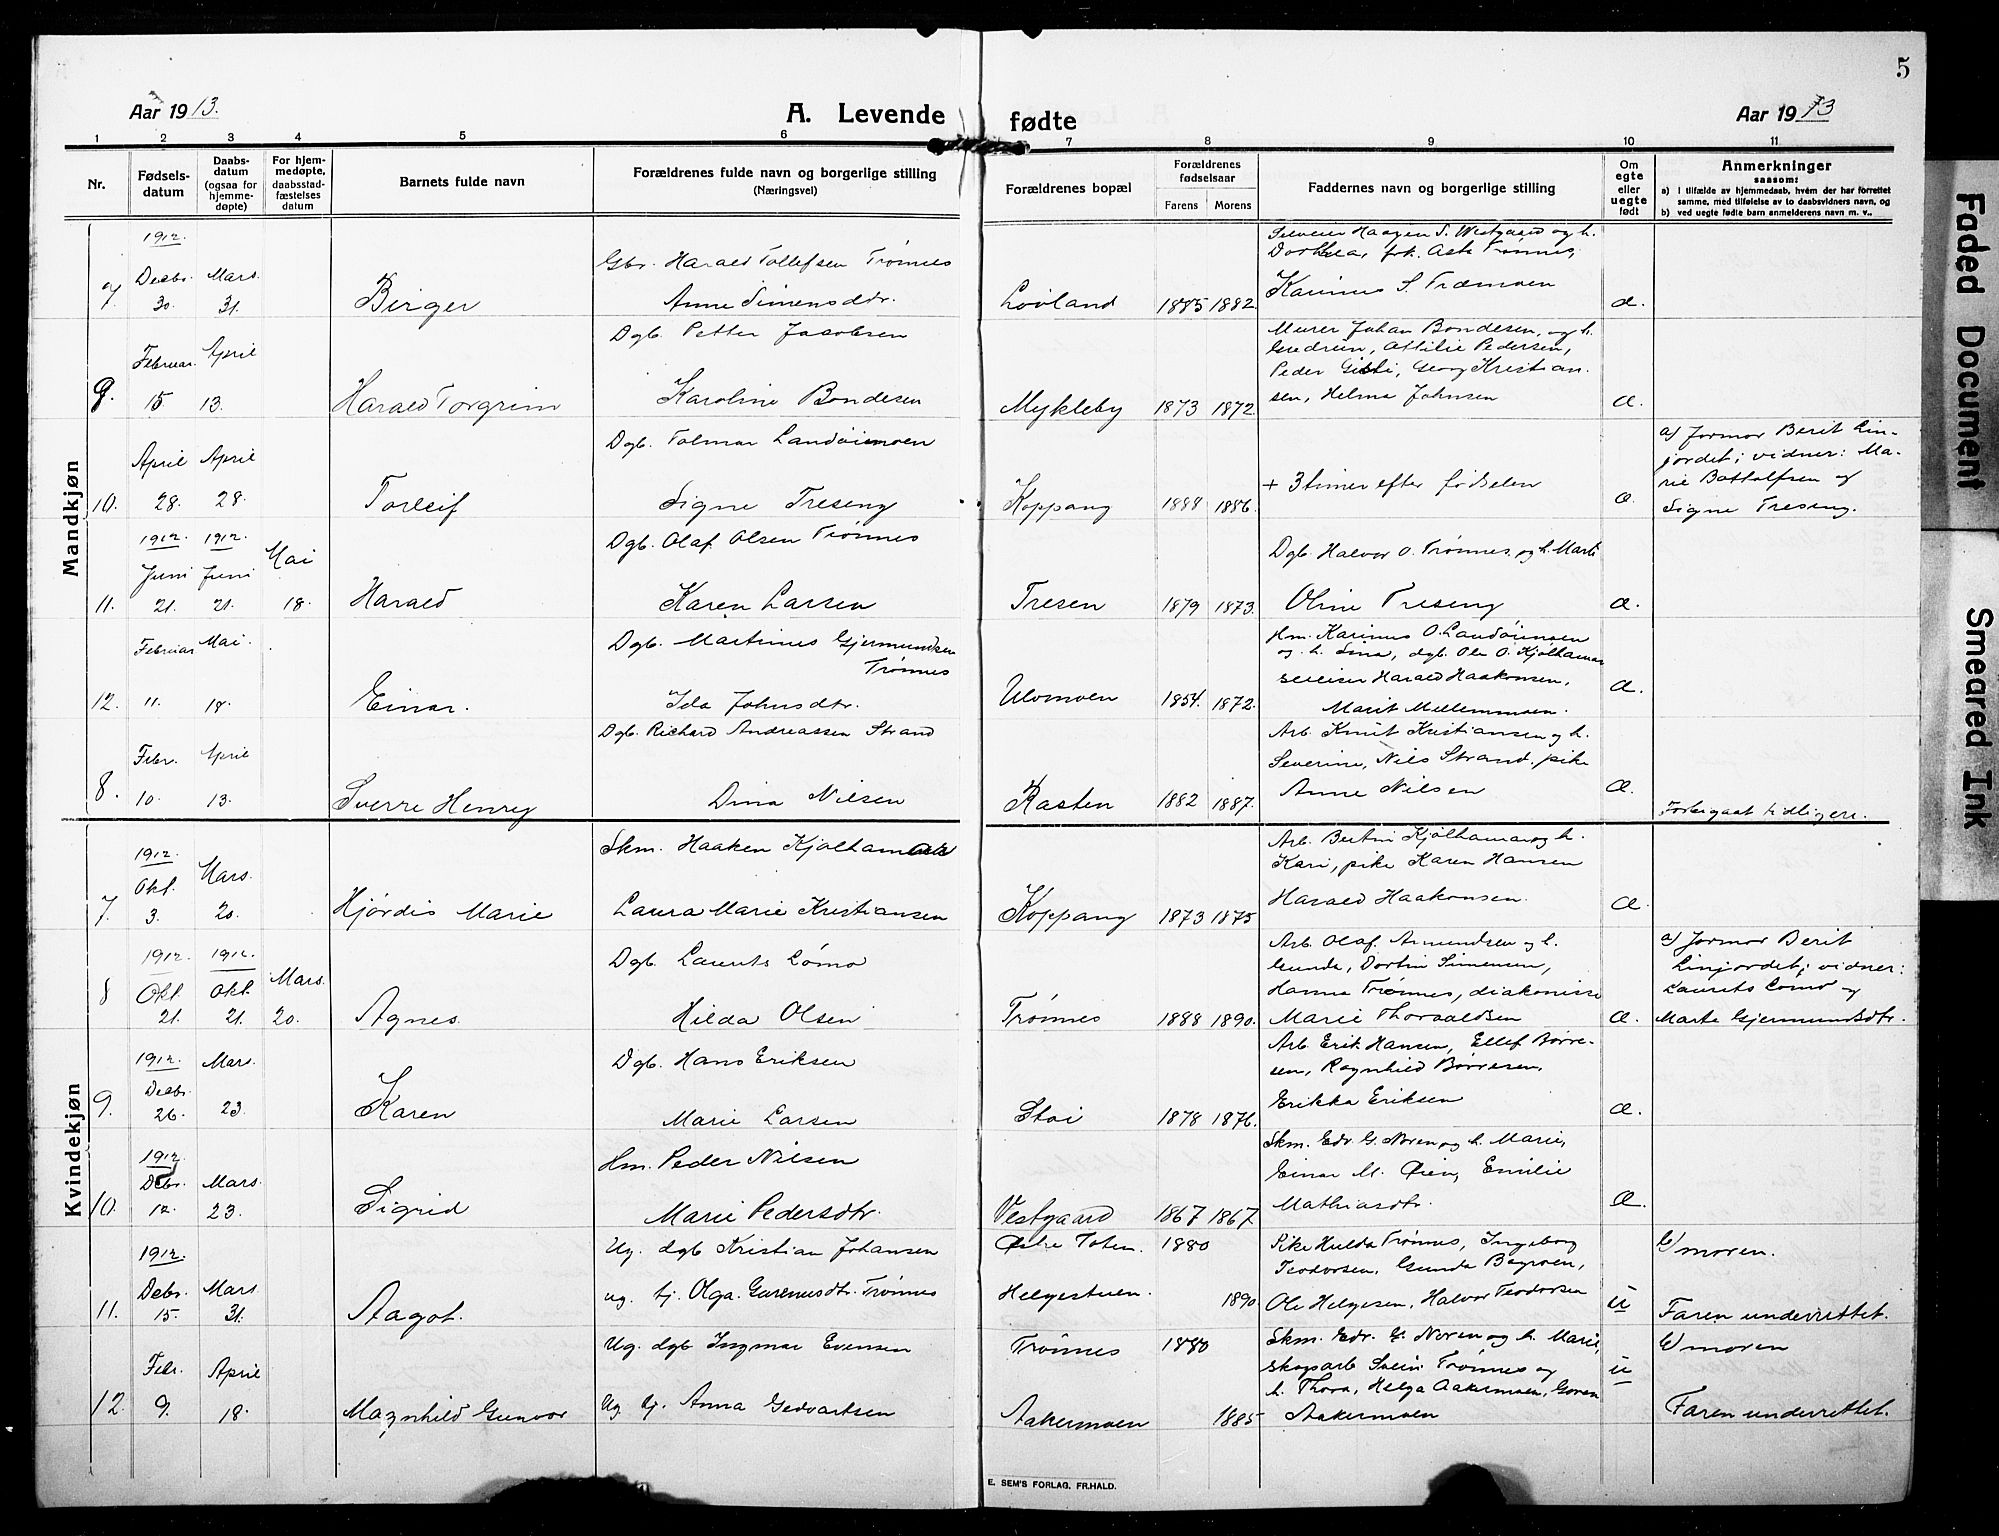 5
Aar 1913.
A. Levende
fødte
Aar 1913
1 2 3 4 5 6 7 8 9 10 11
Nr.
Fødsels-
datum
Daabs-
datum
(ogsaa for
hjemme-
døpte)
For hjem-
medøpte,
daabsstad-
fæstelses
datum
Barnets fulde navn
Forældrenes fulde navn og borgerlige stilling
(Næringsvei)
Forældrenes bopæl
Forældrenes
fødselsaar
Farens Morens
Faddernes navn og borgerlige stilling
Om
egte
eller
uegte
født
Anmerkninger
saasom:
a) i tilfælde av hjemmedaab, hvem der har forrettet
samme, med tilføielse av to daabsvidners navn, og
b) ved uegte fødte barn anmelderens navn m. v.,
Mandkjøn
7
1912.
Decbr.
30.
Mars.
31.
Birger
Gbr. Harald Tollefsen Trønnes
Anne Simensdtr.
Lovland
1885 1882.
Haagen S. Westgaard og h.
Dorthea, frk. Trønnes,
Karinus S. Træmoen
æ.
9.
Februar.
15
April
13.
Harald Torgrim
Dgb. Petter Jacobsen
Karoline Bondesen
Mykleby
1873 1872.
Murer Johan Bondesen, og h.
Gudrun, Ottilie Pedersen,
Peder Gisti, Georg Kristian-
sen, Helma Johnsen
æ.
10.
April
28.
April
28.
Torleif
Dgb. Tolmar Landsimoen
Signe Treseng
Koppang
1888 1886.
+ 3 timer efter fødselen
æ.
a) Jormor Berit Lin-
jordet; vidner: Ma-
rie Bottolfsen og
Signe Treseng.
11.
1912.
Juni
21.
1912.
Juni
21.
Mai
18.
Harald
Dgb. Olaf Olsen Trønnes
Karen Larsen
Tresen
1879 1873.
Dgb. Halvor O. Trønnes, og h. Marte
Oline Treseng
æ.
12.
Februar
11.
Mai.
18.
Einar.
Dgb. Martinus Gjermundsen
Trønnes
Ida Johnsdtr.
Ulvmoen
1854. 1872.
Hm. Karinus O. Landsimoen
og h. Lina, dgb. Ole O. Kjølhamar
Harald Haakonsen,
Marit Mellemmoen.
æ.
8.
Febr.
10.
April
13.
Sverre Henry
Dgb. Richard Andreassen Strand
Dina Nilsen
Kasten
1882 1887.
Arb. Knut Kristiansen og h.
Severine, Nils Strand, pike
Anne Nilsen
æ.
Forbigaat tidligere.
Kvindekjøn
7.
1912.
Okt.
3.
Mars.
20.
Hjørdis Marie
Skm. Haaken Kjølhamar
Laura Marie Kristiansen
Koppang
1873 1875
Arb. Bertin Kjølhamar og h.
Kari, pike Karen Hansen
Harald Haakonsen.
æ.
8
1912.
Okt.
21.
1912.
Okt.
21.
Mars.
20.
Agnes.
Dgb. Laurits Lomo
Hilda Olsen
Trønnes
1888 1890.
Arb. Olaf Amundsen og h.
Gunda, Dortin Simensen,
Hanna Trønnes, diakonisse
Marie Thoraldsen
æ.
a) Jormor Berit
Linjordet; vidner:
Laurits Lomo og
Marte Gjermundsdtr.
9.
1912.
Decbr.
26.
Mars.
23.
Karen
Dgb. Hans Eriksen
Marie Larsen
Stai
1878 1876.
Arb. Erik Hansen, Ellef Børre-
sen, Ragnhild Børresen,
Erikka Eriksen
æ.
10.
1912.
Debr.
12.
Mars.
23.
Sigrid
Hm. Peder Nilsen
Marie Pedersdtr.
Vestgaard
1867 1867.
Skm. Edv. G. Noren og h. Marie,
Einar M. Øien, Emilie
Mathiasdtr.
æ.
11.
1912.
Debr.
15.
Mars
31.
Aagot.
Ug. dgb Kristian Johansen
ug. tj. Olga Gurenusdtr. Trønnes
Østre Toten. 1880
Helgestuen. 1890.
Pike Hulda Trønnes, Ingeborg
Teodorsen, Gunda
Ole Helgesen, Halvor Teodorsen
u
b) moren.
Faren underrettet.
12.
Febr.
9.
April
18.
Magnhild Gunvor
Ug. dgb Ingmar Evensen
Ug. tj. Anna Gedvartsen
Trønnes 1880
Aakermoen 1885
Skm. Edv. G. Noren og h. Marie,
skogsarb Svein Trønnes og
h. Thora, Helga Aakermoen, Goren
Aakermoen
u
b) moren
Faren underrettet.
E. SEM'S FORLAG, FR.HALD.
Faded Document
Smeared Ink